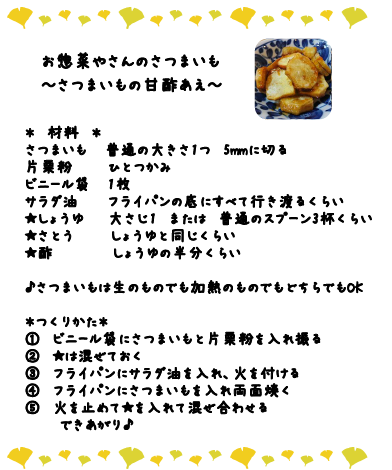 お惣菜やさんのさつまいも
～さつまいもの甘酢あえ～
＊ 材料 ＊
さつまいも 普通の大きさ1つ 5mmに切る
片栗粉 ひとつかみ
ビニール袋 1枚
サラダ油 フライパンの底にすべて行き渡るくらい
★しょうゆ 大さじ1 または 普通のスプーン3杯くらい
★さとう しょうゆと同じくらい
★酢 しょうゆの半分くらい
♪さつまいもは生のものでも加熱のものでもどちらでもOK
＊つくりかた＊
① ビニール袋にさつまいもと片栗粉を入れ振る
② ★は混ぜておく
③ フライパンにサラダ油を入れ、火を付ける
④ フライパンにさつまいもを入れ両面焼く
⑤ 火を止めて★を入れて混ぜ合わせる
できあがり♪